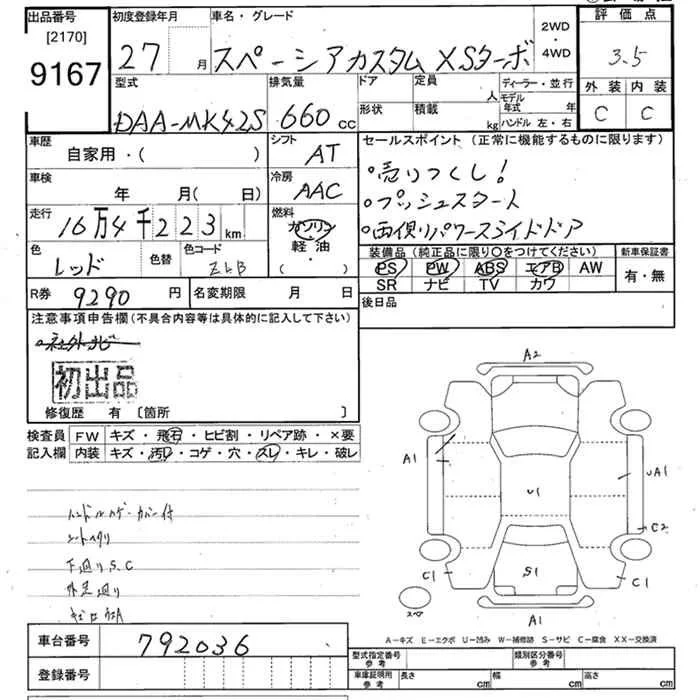 出品番号
[2170]
9167
初度登録年月
27 月
車名・グレード
スペーシアカスタム XSターボ
2WD
・
4WD
評価点
3.5
外装 内装
C C
型式
DAA-MK42S
排気量
660 cc
ドア
形状
定員 人
積載 kg
ディーラー・並行
モデル年式 年
ハンドル 左・右
車歴
自家用・( )
シフト
AT
セールスポイント (正常に機能するものに限ります)
・売りつくし!
・プッシュスタート
・両側パワースライドドア
車検
年 月( 日)
冷房
AAC
走行
16万4千223km
燃料
ガソリン
軽油
( ・ )
色
レッド
色替
色コード
ZLB
装備品 (純正品に限り○をつけてください)
PS PW ABS エアB AW
SR ナビ TV カワ
新車保証書
有・無
R券 9290 円
名変期限 月 日
後日品
注意事項申告欄(不具合内容等は具体的に記入して下さい)
・社外ナビ
初出品
修復歴 有 [箇所 ]
検査員
記入欄
FW キズ・飛石・ヒビ割・リペア跡・×要
内装 キズ・汚レ・コゲ・穴・スレ・キレ・破レ
下廻りS.C
A2
A1
U1
UA1
C2
C1
S1
C1
A1
A-キズ E-エクボ U-凹み W-補修跡 S-サビ C-腐食 XX-交換済
車台番号 792036
登録番号
型式指定番号
参考
類別区分番号
参考
車庫証明用
参考
長さ cm 幅 cm 高さ cm